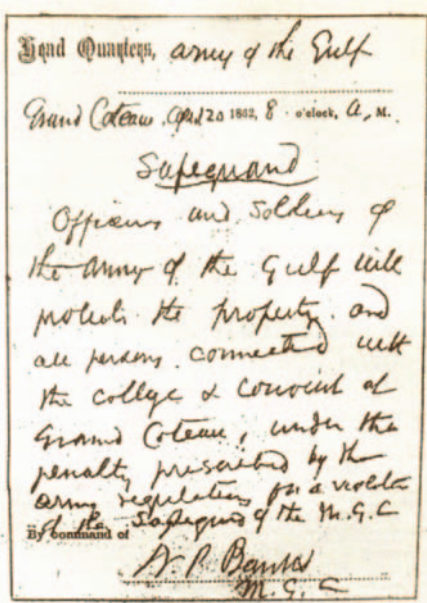 Head Quarters, Army of the Gulf
Grand Coteau, April 20 1862, 8 o'clock, A, M.
Safeguard
Officers and Soldiers of
the Army of the Gulf will
protect the property and
all persons connected with
the College & Convent at
Grand Coteau, under the
penalty prescribed by the
army regulations for a violation
of the Safeguard of the M.G.C
By command of
N. P. Banks
M. G. C